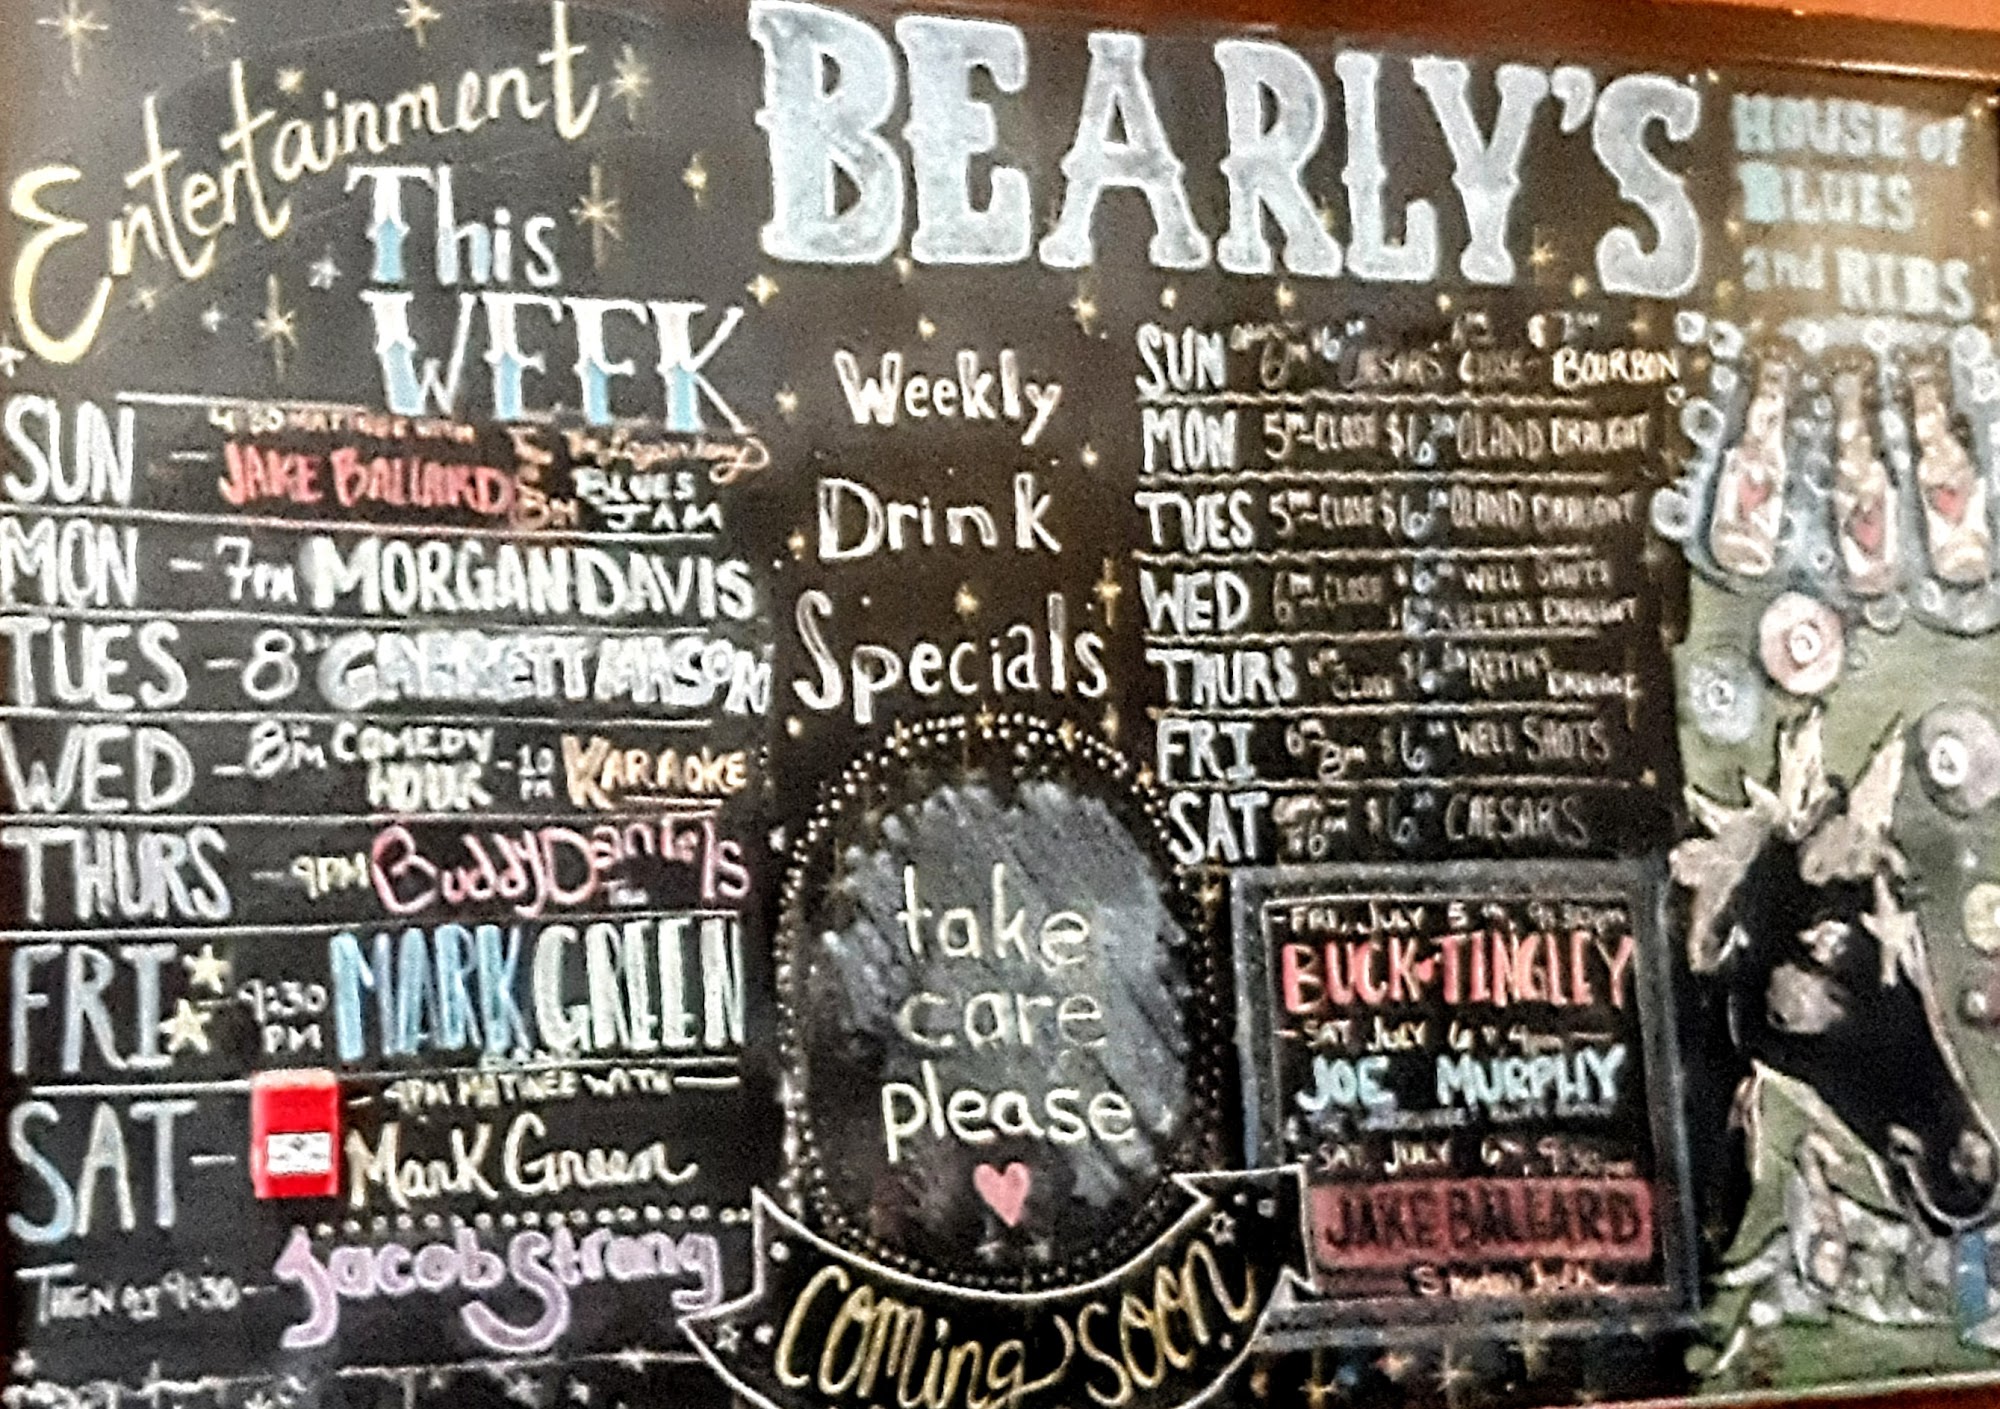 Entertainment
This
WEEK
SUN - 4:30 MATINEE WITH
JAKE BALLARD
8PM BLUES
JAM
MON - 7PM MORGAN DAVIS
TUES - 8PM GARRETT MASON
WED - 8PM COMEDY
HOUR - 10PM KARAOKE
THURS - 9PM Buddy Daniels
FRI - 9:30
PM MARK GREEN
SAT - 4PM MATINEE WITH
Mark Green
THEN at 9:30 - Jacob Strang
BEARLY'S
HOUSE of
BLUES
and RIBS
Weekly
Drink
Specials
SUN CAESARS CLOSE - BOURBON
MON 5PM-CLOSE $6 OLAND DRAUGHT
TUES 5PM-CLOSE $6 OLAND DRAUGHT
WED 6PM-CLOSE $6 WELL SHOTS
$6 KEITH'S DRAUGHT
THURS CLOSE $6 KEITH'S DRAUGHT
FRI 8PM $6 WELL SHOTS
SAT $6 CAESARS
take
care
please
Coming Soon
-FRI. JULY 5TH, 9:30PM
BUCK TINGLEY
-SAT JULY 6TH 4PM
JOE MURPHY
-SAT. JULY 6TH, 9:30PM
JAKE BALLARD